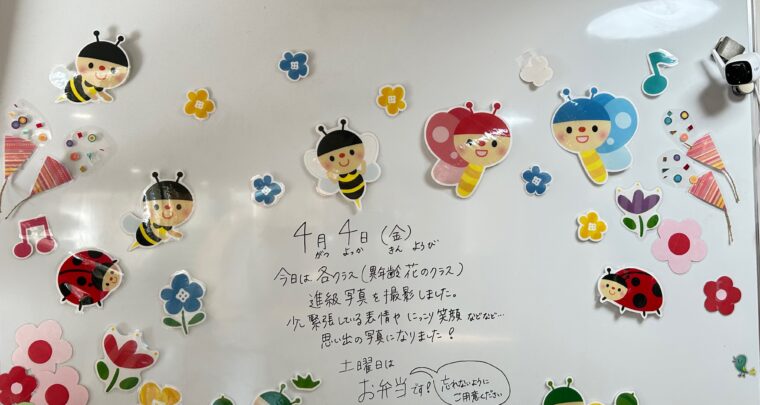 4月4日(金)
がつ よっか きん ようび
今日は各クラス(異年齢 花のクラス)
進級写真を撮影しました。
少し緊張している表情や にっこり笑顔 などなど…
思い出の写真になりました!
土曜日は
お弁当です!
忘れないように
ご用意ください